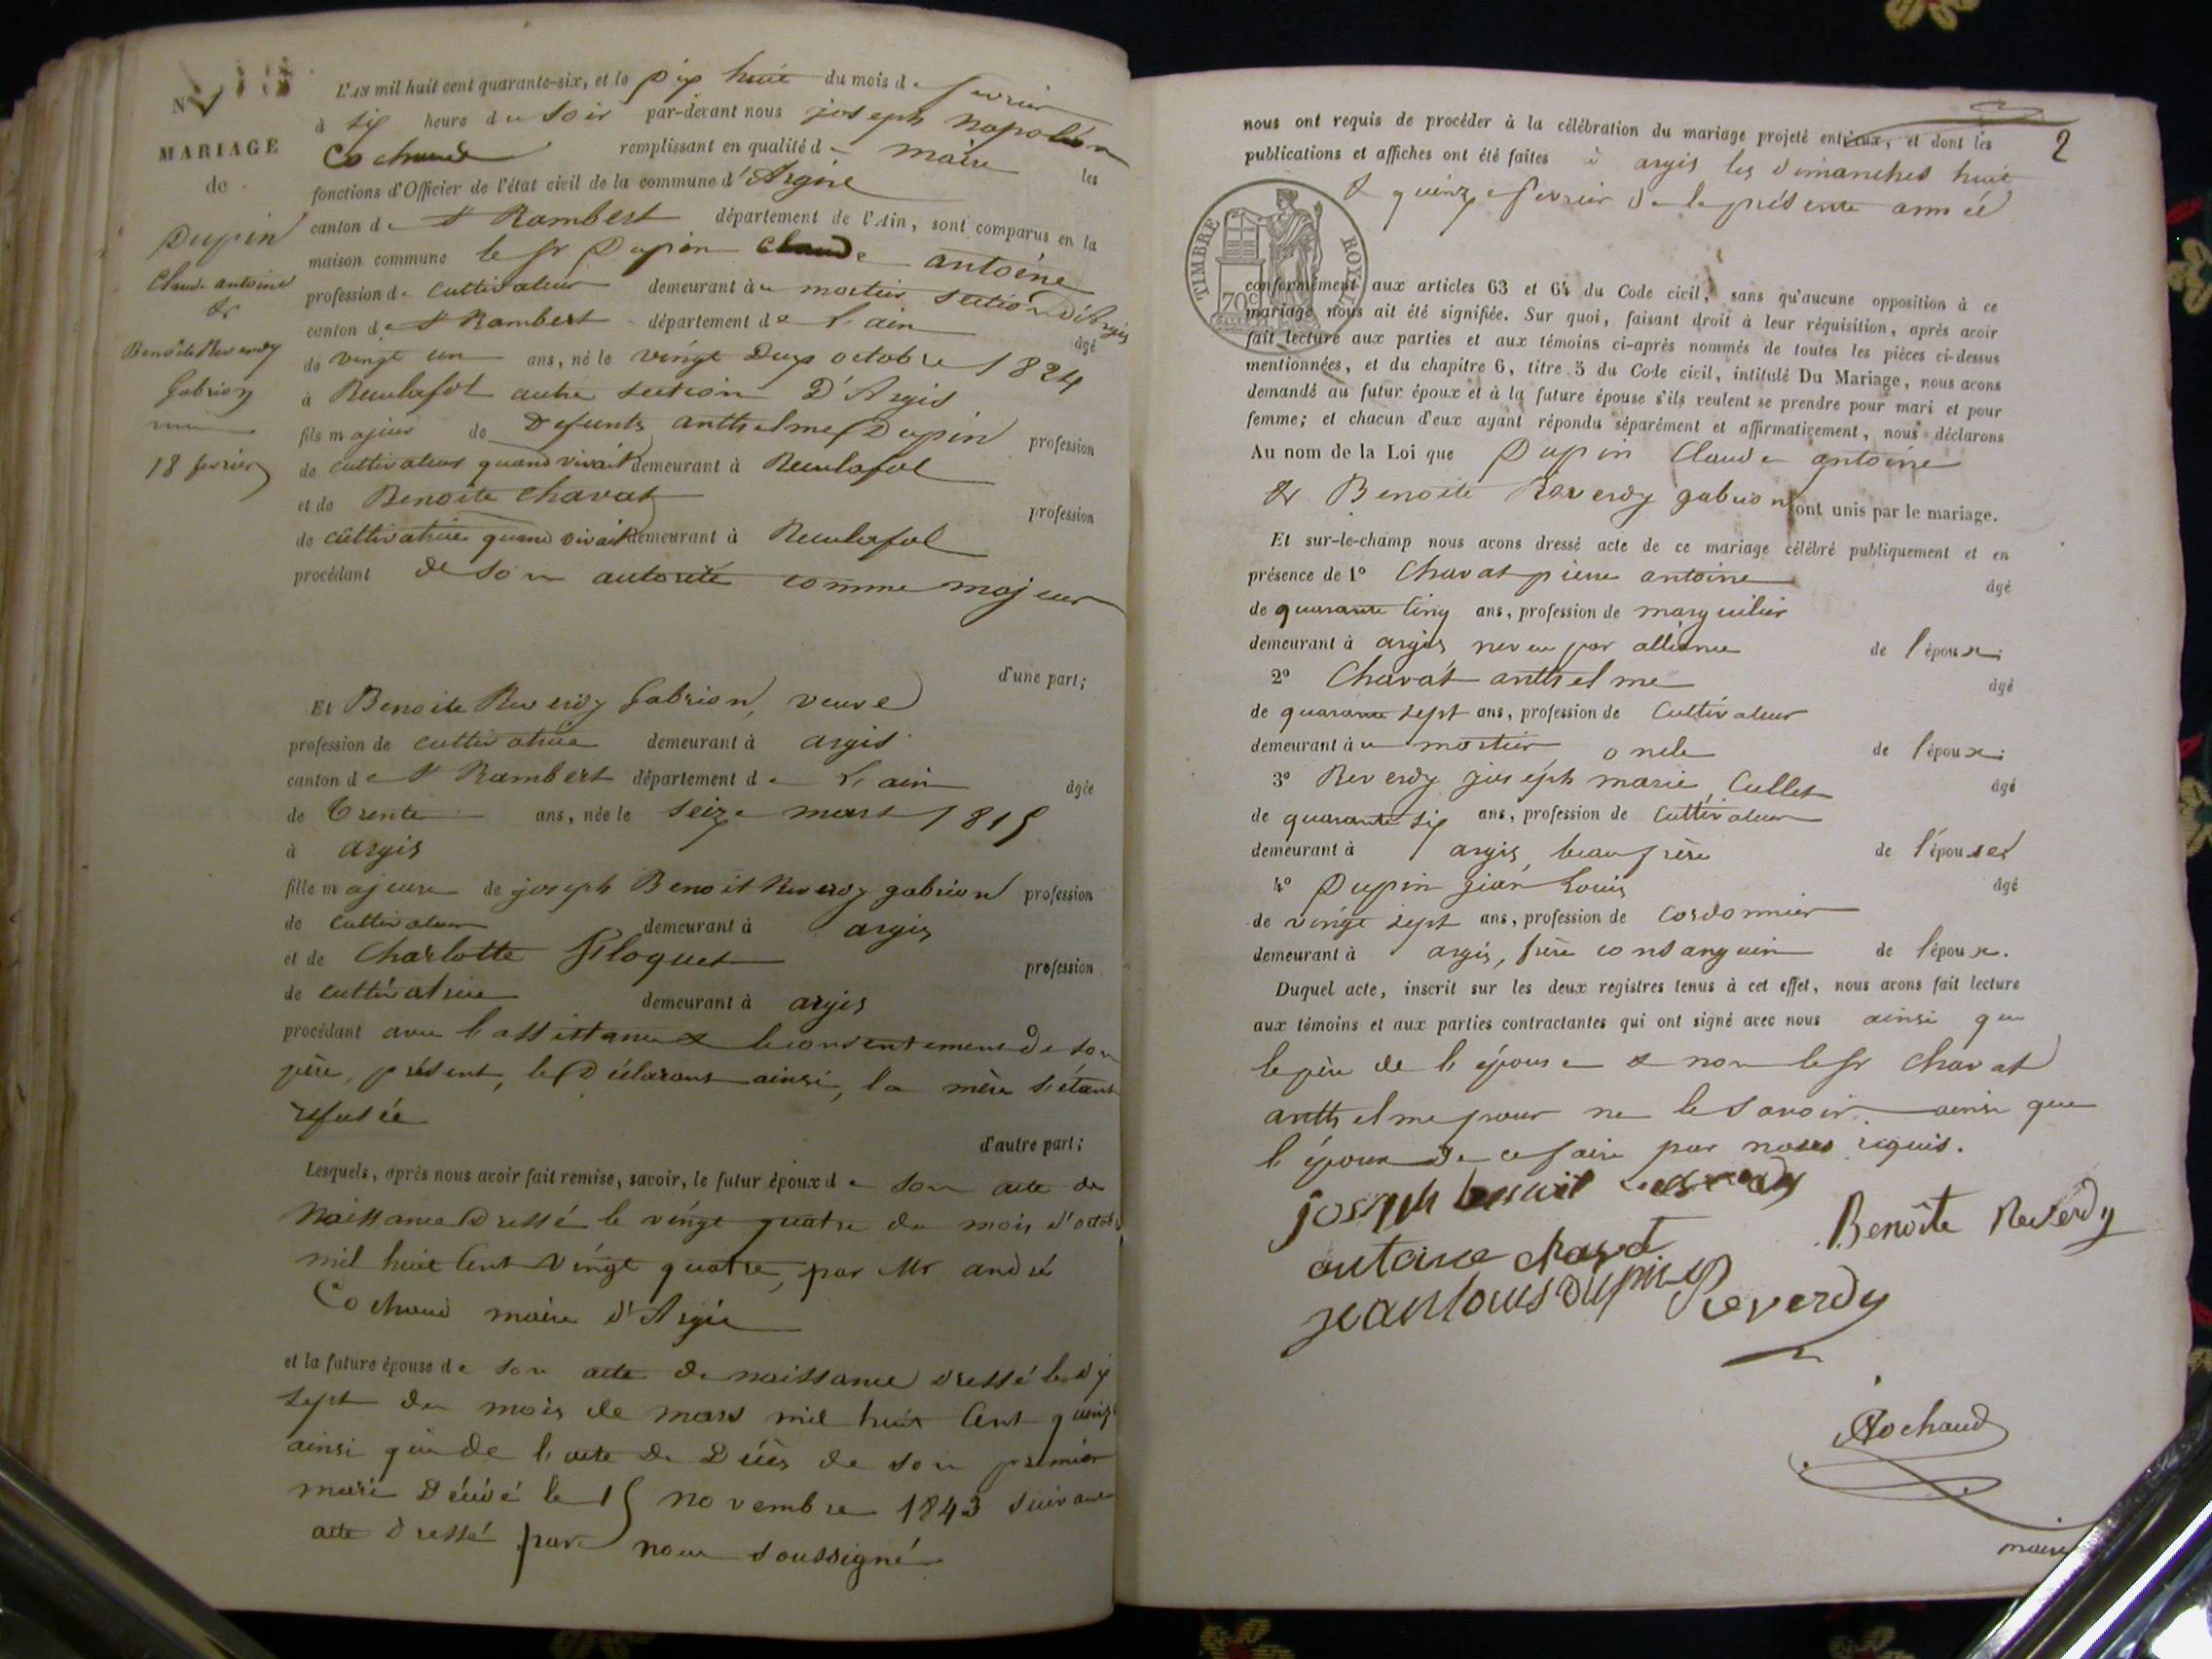 N
MARIAGE
de
Dupin
Claude antoine
&
Benoite Reverdy
Gabrion
18 fevrier
L'AN mil huit cent quarante-six, et le Dix huit du mois de fevrier
à six heure du soir par-devant nous joseph Napoléon
Cochaud remplissant en qualité de maire les
fonctions d'Officier de l'état civil de la commune d'Argis
canton de St Rambert département de l'Ain, sont comparus en la
maison commune le sr Dupin Claude antoine
profession de cultivateur demeurant au mortier section D'Argis
canton de St Rambert département de l'ain âgé
de vingt un ans, né le vingt Deux octobre 1824
à Reculafol autre section D'Argis
fils majeur de Defunts anthelme Dupin profession
de cultivateur quand vivait demeurant à Reculafol
et de Benoite Chavat profession
de cultivatrice quand vivait demeurant à Reculafol
procédant de son autorité comme majeur
d'une part;
Et Benoite Reverdy Gabrion, veuve
profession de cultivatrice demeurant à argis
canton de St Rambert département de l'ain âgée
de trente ans, née le seize mars 1815
à argis
fille majeure de joseph Benoit Reverdy gabrion profession
de cultivateur demeurant à argis
et de Charlotte Floquet profession
de cultivatrice demeurant à argis
procédant avec l'assistance & le consentement de son
père, présent, le Déclarant ainsi, la mère s'étant
refusée
d'autre part;
Lesquels, après nous avoir fait remise, savoir, le futur époux de son acte de
Naissance Dressé le vingt quatre du mois d'octob
mil huit Cent vingt quatre, par Mr andré
Cochaud maire d'Argis
et la future épouse de son acte de naissance dressé le dix
sept du mois de mars mil huit Cent quinze
ainsi que de l'acte de Décès de son premier
mari Décédé le 15 novembre 1843 suivant
acte dressé par nous soussigné
2
nous ont requis de procéder à la célébration du mariage projeté entr'eux, et dont les
publications et affiches ont été faites à argis les dimanches huit
& quinze fevrier de la présente année
TIMBRE ROYAL
70c
conformément aux articles 63 et 64 du Code civil, sans qu'aucune opposition à ce
mariage nous ait été signifiée. Sur quoi, faisant droit à leur réquisition, après avoir
fait lecture aux parties et aux témoins ci-après nommés de toutes les pièces ci-dessus
mentionnées, et du chapitre 6, titre 5 du Code civil, intitulé Du Mariage, nous avons
demandé au futur époux et à la future épouse s'ils veulent se prendre pour mari et pour
femme; et chacun d'eux ayant répondu séparément et affirmativement, nous déclarons
Au nom de la Loi que Dupin Claude antoine
& Benoite Reverdy gabrion sont unis par le mariage.
Et sur-le-champ nous avons dressé acte de ce mariage célébré publiquement et en
présence de 1° Chavat pierre antoine âgé
de quarante cinq ans, profession de marguilier
demeurant à argis neveu par alliance de l'époux;
2° Chavat anthelme âgé
de quarante sept ans, profession de Cultivateur
demeurant au mortier, oncle de l'époux;
3° Reverdy joseph marie Cullet âgé
de quarante six ans, profession de Cultivateur
demeurant à argis, beau frère de l'épouse;
4° Dupin jean Louis âgé
de vingt sept ans, profession de Cordonnier
demeurant à argis, frère consanguin de l'époux.
Duquel acte, inscrit sur les deux registres tenus à cet effet, nous avons fait lecture
aux témoins et aux parties contractantes qui ont signé avec nous ainsi que
le père de l'épouse & non le sr Chavat
anthelme pour ne le savoir, ainsi que
l'époux de ce faire par nous requis.
joseph benoit reverdy
Benoîte Reverdy
antoine chavat
jean louis Dupin Reverdy
Cochaud
maire